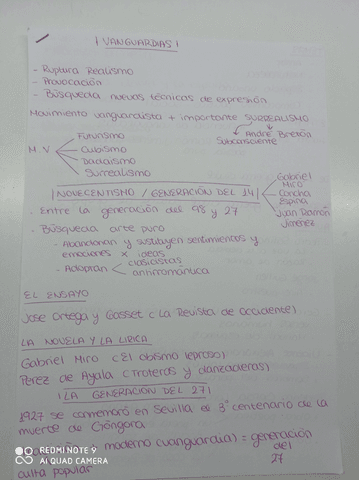 | VANGUARDIAS |
- Ruptura Realismo
- Provocación
- Búsqueda nuevas técnicas de expresión
Movimiento vanguardista + importante SURREALISMO
André Bretón
Subconsciente
Futurismo
M V Cubismo
Dadaísmo
Surrealismo
| NOVECENTISMO / GENERACIÓN DEL 14 |
Gabriel
Miró
Concha
Espina
Juan Ramón
Jiménez
- Entre la generación del 98 y 27
- Búsqueda arte puro
- Abandonan y sustituyen sentimientos y
emociones x ideas
- Adoptan clasicistas
antirromántica
EL ENSAYO
Jose Ortega y Gasset (La Revista de Occidente)
LA NOVELA Y LA LÍRICA
Gabriel Miró (El obismo leproso)
Pérez de Ayala (Troteras y danzaderas)
| LA GENERACIÓN DEL 27 |
1927 se conmemoró en Sevilla el 3º centenario de la
muerte de Góngora
moderno (vanguardia) = generación
del
27
culta popular
REDMI NOTE 9
AI QUAD CAMERA